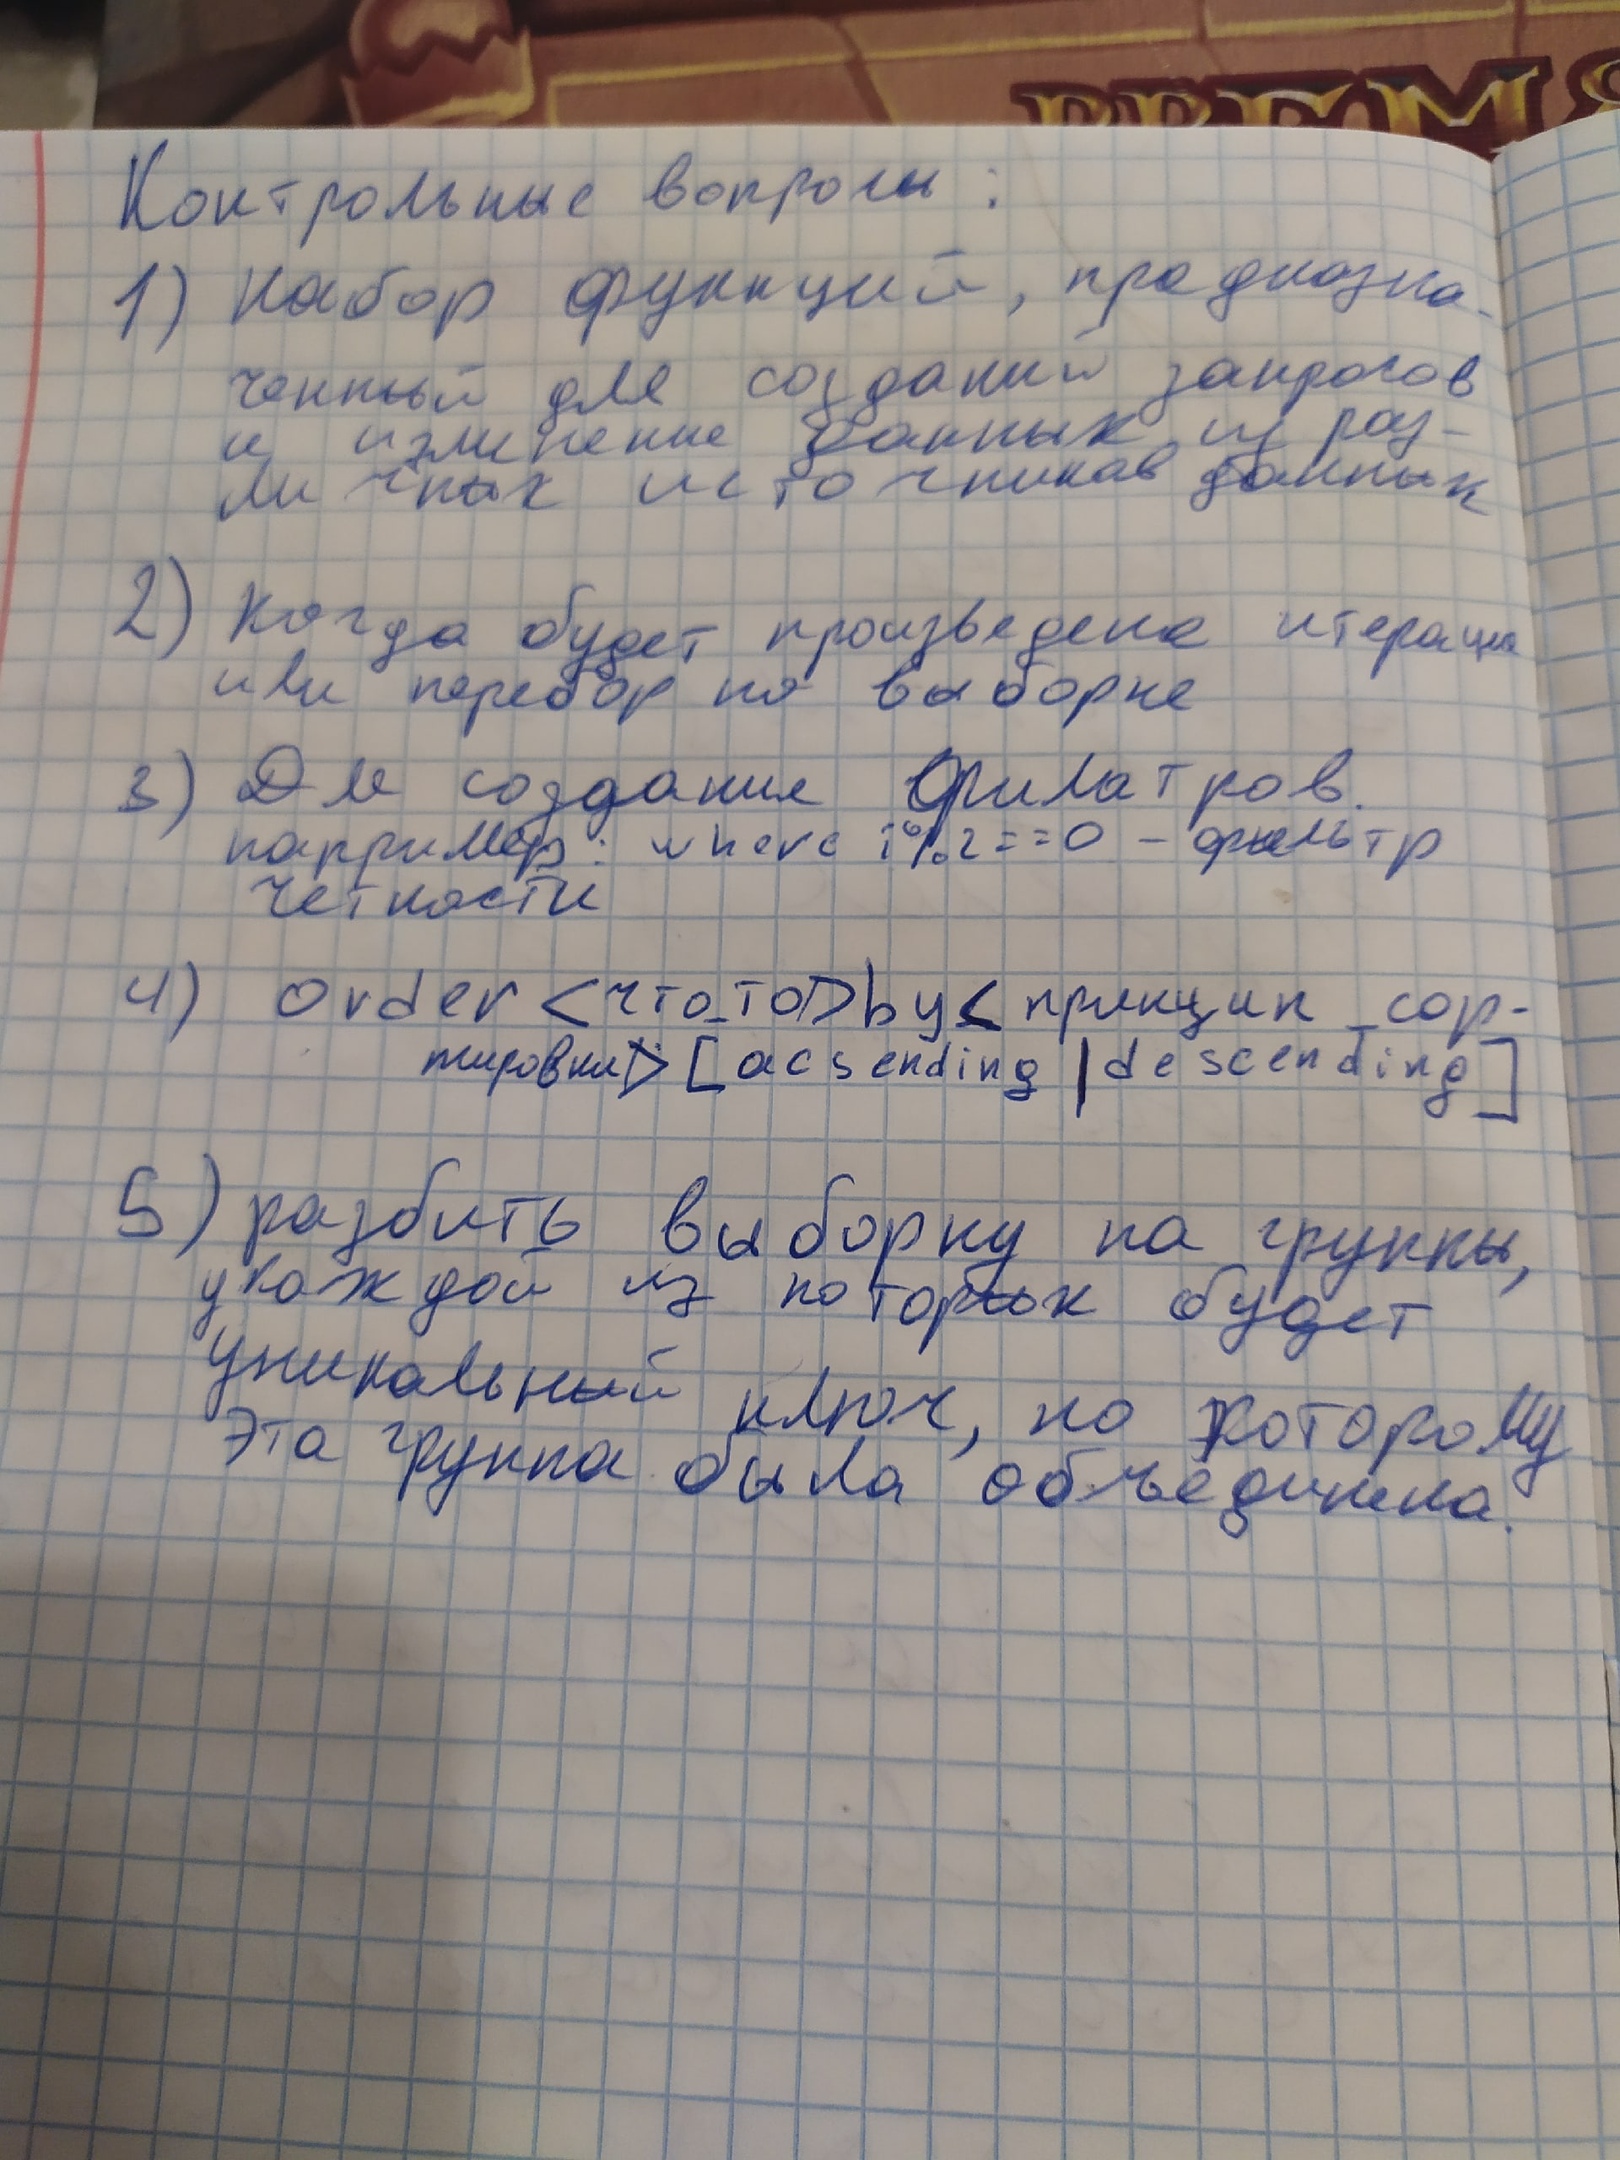 ВРЕМЯ
Контрольные вопросы:
1) Набор функций, предназна-
ченный для созданий запросов
и изменение данных из раз-
личных источников данных
2) Когда будет произведена итерация
или перебор по выборке
3) Для создания филатров.
например: where i%2==0 - фильтр
четности
4) order <что_то> by < принцип_сор-
тировки> [acsending | descending]
5) разбить выборку на группы,
у каждой из которых будет
уникальный ключ, по которому
Эта группа была объединена.